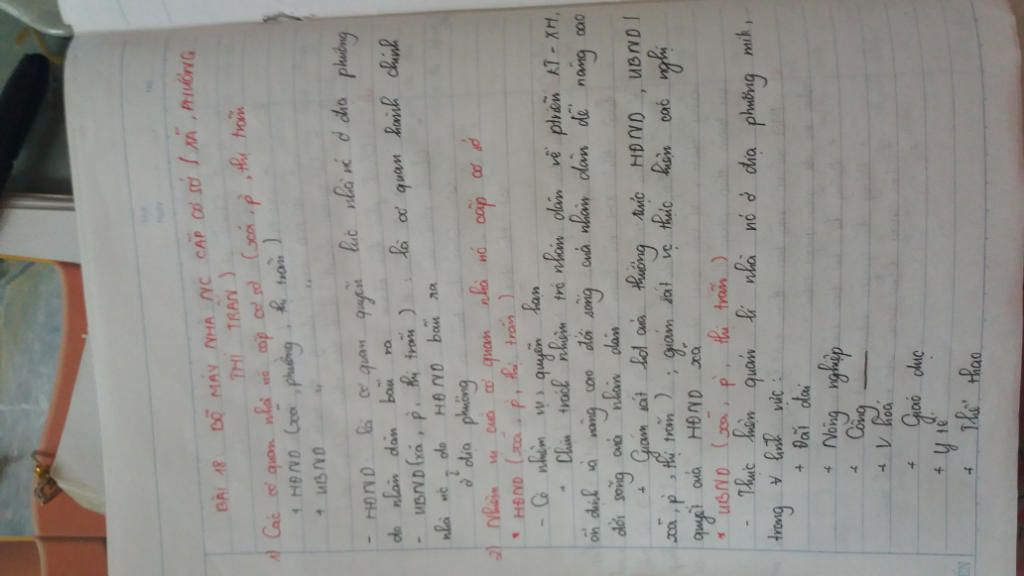 BÀI 18 BỘ MÁY NHÀ NC CẤP CƠ SỞ ( XÃ, PHƯỜNG
THỊ TRẤN )
1) Các cơ quan nhà nc cấp cơ sở (xã, p, thị trấn
+ HĐND (xã, phường, thị trấn )
+ UBND " " "
- HĐND là cơ quan quyền lực nhà nc ở địa phương
do nhân dân bầu ra
- UBND (xã, p, thị trấn ) : là cơ quan hành chính
nhà nc do HĐND bầu ra
ở địa phương
2) Nhiệm vụ của cơ quan nhà nc cấp cơ sở
* HĐND (xã, p, thị trấn )
- Có nhiệm vụ, quyền hạn
+ Chịu trách nhiệm trc nhân dân về phtriển KT - XH,
ổn định và nâng cao đời sống của nhân dân để nâng cao
đời sống của nhân dân
+ Giám sát hđ của thường trực HĐND, UBND (
xã, p, thị trấn ) ; giám sát vc thực hiện các nghị
quyết của HĐND xã
* UBND (xã, p, thị trấn )
- Thực hiện quản lí nhà nc ở địa phương mik,
trong ∀ lĩnh vực :
+ Đất đai
+ Nông nghiệp
+ Công ___
+ V hoá
+ Giáo dục
+ Y tế
+ Thể thao